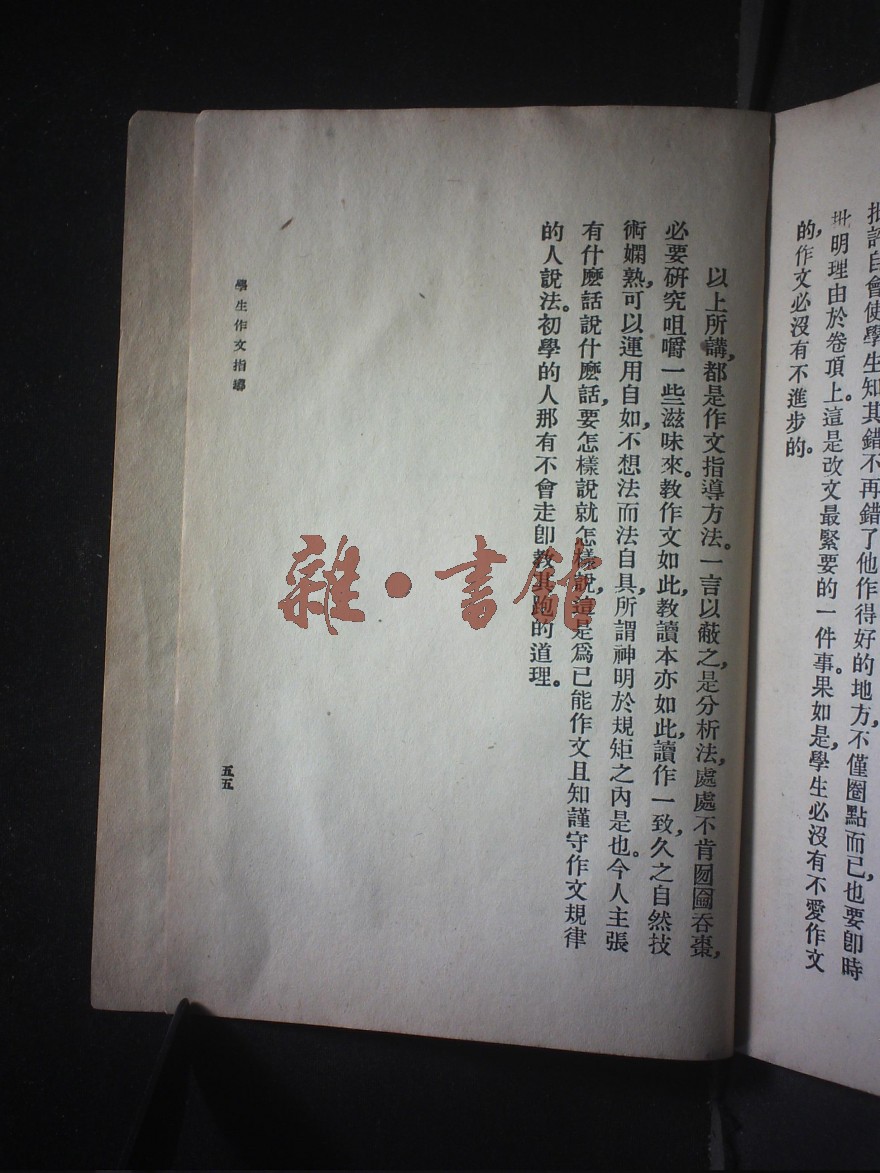 批評自會使學生知其錯不再錯了他作得好的地方,不僅圈點而已也要卽時
批明理由於卷頂上。這是改文最緊要的一件事。果如是,學生必沒有不愛作文
的,作文必沒有不進步的。
以上所講,都是作文指導方法。一言以蔽之,是分析法,處處不肯囫圇吞棗,
必要硏究咀嚼一些滋味來。教作文如此,教讀本亦如此,讀作一致,久之自然技
術嫻熟,可以運用自如,不想法而法自具,所謂神明於規矩之內是也。今人主張
有什麽話說什麽話,要怎樣說就怎樣說,這是爲已能作文且知謹守作文規律
的人說法。初學的人那有不會走卽教其跑的道理。
學生作文指導
五五
雜·書館